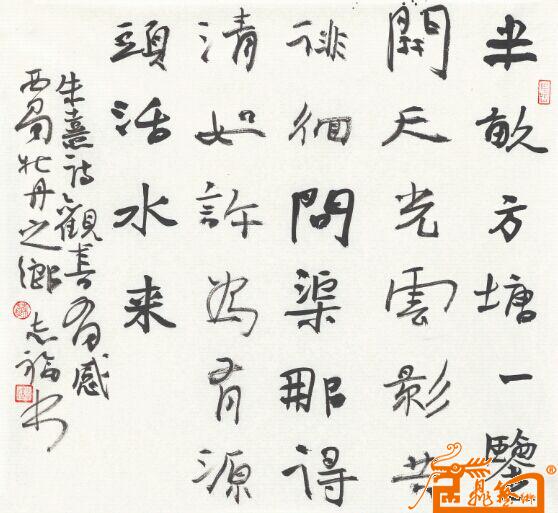 半畝方塘一鑒
開天光雲影共
徘徊問渠那得
清如許為有源
頭活水来
朱熹詩觀書有感
西蜀牡丹之鄉 志福书